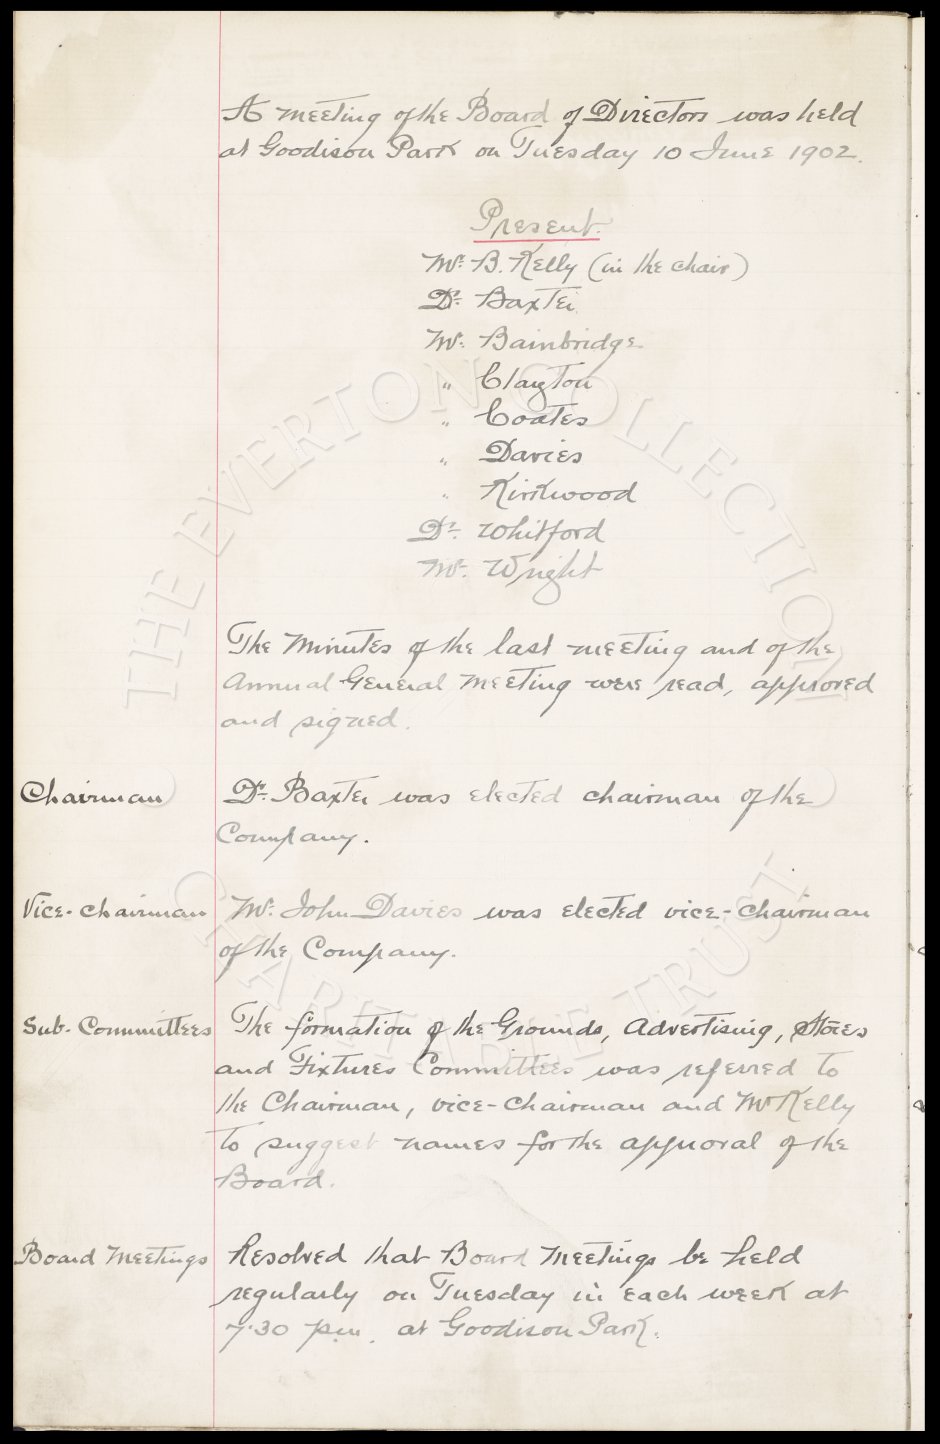 A meeting of the Board of Directors was held
at Goodison Park on Tuesday 10 June 1902.
Present.
Mr. B. Kelly (in the chair)
Dr. Baxter
Mr. Bainbridge
" Clayton
" Coates
" Davies
" Kirkwood
Dr. Whitford
Mr. Wright
The Minutes of the last meeting and of the
Annual General Meeting were read, approved
and signed.
Chairman Dr. Baxter was elected chairman of the
Company.
Vice-chairman Mr. John Davies was elected vice-chairman
of the Company.
Sub-Committees The formation of the Grounds, Advertising, Stores
and Fixtures Committees was referred to
the Chairman, vice-chairman and Mr Kelly
to suggest names for the approval of the
Board.
Board Meetings Resolved that Board Meetings be held
regularly on Tuesday in each week at
7.30 p.m. at Goodison Park.
THE EVERTON COLLECTION
CHARITABLE TRUST